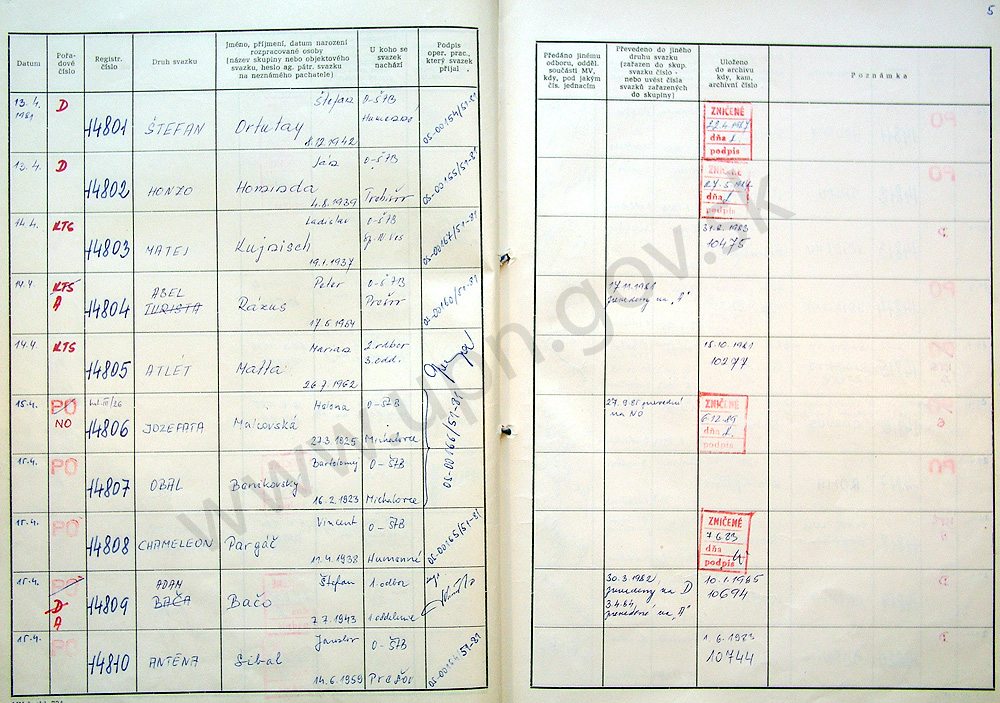 5
Datum
Pořa-
dové
číslo
Registr.
číslo
Druh svazku
Jméno, příjmení, datum narození
rozpracované osoby
(název skupiny nebo objektového
svazku, heslo ag. pátr. svazku
na neznámého pachatele)
U koho se
svazek
nachází
Podpis
oper. prac.,
který svazek
přijal
Předáno jinému
odboru, odděl.
součásti MV,
kdy, pod jakým
čís. jednacím
Převedeno do jiného
druhu svazku
(zařazen do skup.
svazku číslo -
nebo uvést čísla
svazků zařazených
do skupiny)
Uloženo
do archivu
kdy, kam,
archivní číslo
Poznámka
13. 4.
1981
D
14801
ŠTEFAN
Štefan
Ortutay
8.12.1942
O-ŠTB
Humenné
OS-00154/51-81
ZNIČENÉ
dňa
podpis
13. 4.
D
14802
HONZO
Ján
4.8.1939
O-ŠTB
Trebišov
OS-00155/51-81
dňa
podpis
14.4.
KTS
14803
MATEJ
Ladislav
19.1.1937
O-ŠTB
Sp. N. Ves
OS-00167/51-81
10475
14.4.
KTS
A
14804
ABEL
TURISTA
Peter
Rázus
O-ŠTB
Prešov
OS-00160/51-81
17.11.1981
prevedený na "A"
14.4.
KTS
14805
ATLÉT
Marian
Matta
26.7.1962
2. odbor
3. odd.
15.10.1981
10277
15.4.
PO
NO
14806
JOZEFATA
Helena
Malcovská
27.3.1925
O-ŠTB
Michalovce
OS-00166/51-81
27.9.85 prevedené
na NO
ZNIČENÉ
6.12.89
dňa
podpis
15.4.
PO
14807
OBAL
Bartolomej
16.2.1923
O-ŠTB
Michalovce
15.4.
PO
14808
CHAMELEON
Vincent
Pargáč
11.4.1938
O-ŠTB
Humenné
OS-00165/51-81
ZNIČENÉ
dňa
podpis
15.4.
PO
D
A
14809
ADAM
BAČA
Štefan
Bačo
7.7.1943
1. odbor
1. oddelenie
30.3.1982
prevedený na D
3.4.84
prevedené na "A"
10.1.1985
10694
15.4.
PO
14810
ANTÉNA
Jaroslav
Sibal
14.6.1959
O-ŠTB
Prešov
OS-00164/51-81
1.6.1983
10744
www.upn.gov.sk